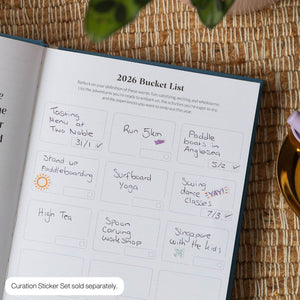 2026 Bucket List
Reflect on your definition of these words: fun, satisfying, exciting and wholesome.
List the adventures you're ready to embark on, the activities you're eager to do
and the experiences you want to embrace this year.
Tasting
Menu at
Two Noble
31/1 ✓
Run 5km
Paddle
boats in
Anglesea
5/2 ✓
Stand up
Paddleboarding
Surfboard
Yoga
Swing
dance
classes
7/3 ✓
High Tea
Spoon
carving
workshop
Singapore
with the kids
Curation Sticker Set sold separately.